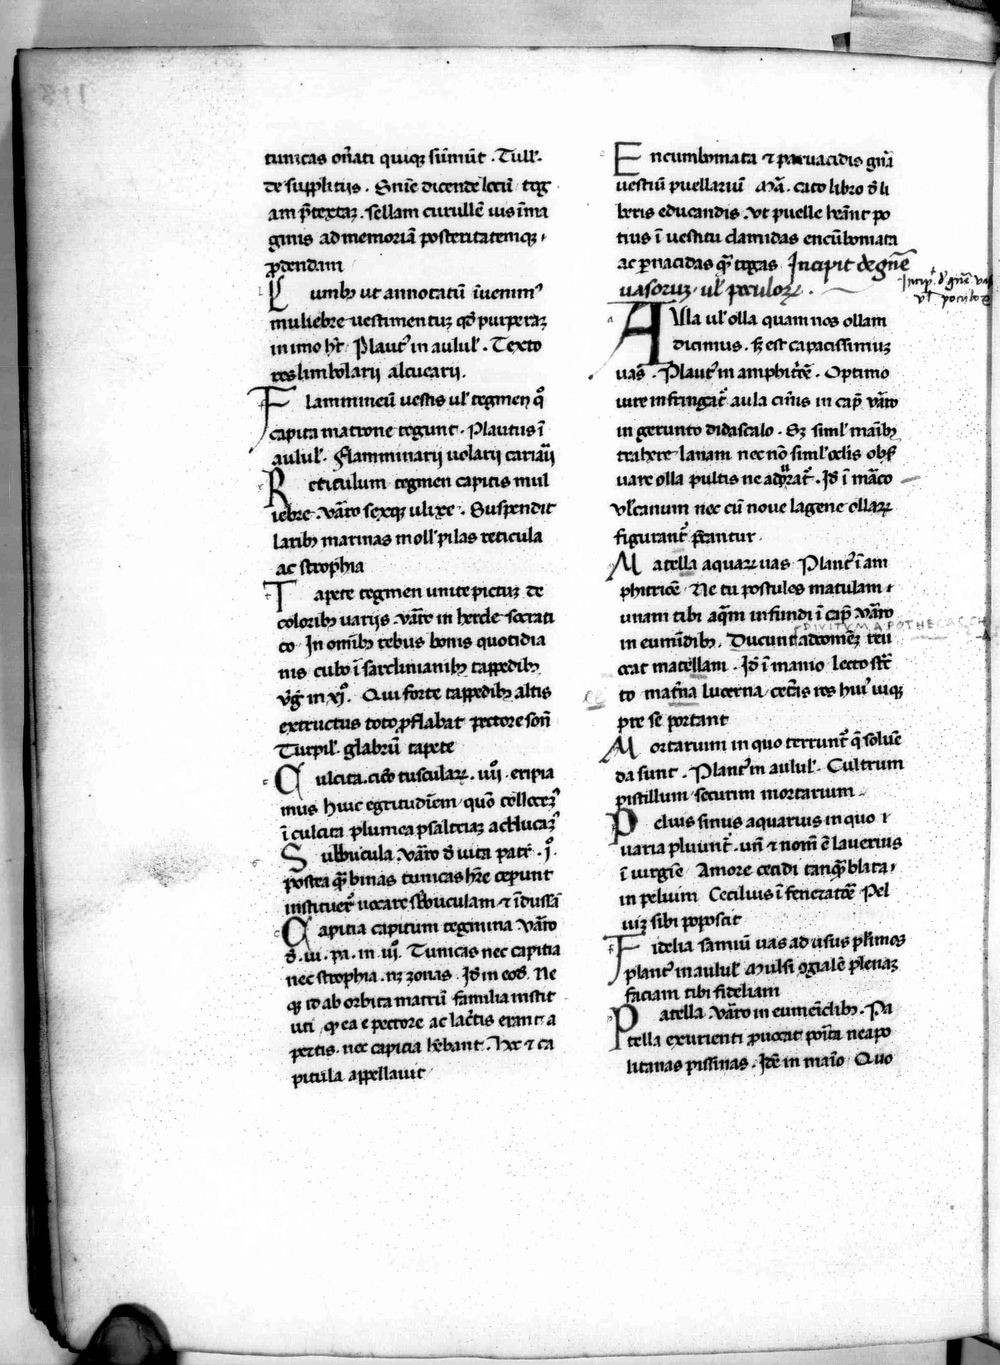 tunicas ornati quiqꝫ sũmũt . Tull'.
de suppliciis . Sniẽ dicende locũ tog
am p̃textaꝫ . sellam curullẽ uis ima
ginis ad memoriã posteritatemqꝫ
ꝓdendam
Limbꝫ ut annotatũ inuenim9
muliebre uestimentuꝫ qd̃ purpuraꝫ
in imo hꝫt Plaut9 in aulul' . Texto
res limbolarij alcucarij .
Flammineũ uestis ul' tegmen q̊
capita matrone tegunt . Plautus ĩ
aulul' . Flamminarij uolarij cariarij
Reticulum tegmen capitis mul
iebre . Varro sexqꝫ ulixe . Suspendit
laribꝫ marinas moll' pilas reticula
ac strophia
Tapete tegmen unite pictuꝫ de
coloribꝫ varijs . varro in hercle socrati
co In omibꝫ rebus bonis quotidia
nis cubo ĩ sardinianibꝫ tappedibꝫ
v̊g in xj̊ . Qui forte tappedibꝫ altis
extructus toto ꝓflabat pectore son̄
Turpil' . glabrũ tapete
Culcita . cic̊o tusculaꝝ . iiij . eripia
mus huic egritudinem quo collocemꝰ
ĩ culcita plumea psalteriaꝫ adducaꝫ
Subbucula . varro d̊ uita patr̃ . j̊ .
postea qꝫ binas tunicas hr̃e ceperunt
instituer̃ uocare subuculam ⁊ ĩdussã
Capitia capitum tegmina varro
d̊ . ui . pa . in iiij̊ . Tunicas nec capitia
nec strophia . nꝫ zonas . Id̃ in eod̃ . Ne
qꝫ id ab orbita matrũ familia instit
uti qꝫ ea e pectore ac lacertis erant a
pertis . nec capitia h̃ebant . Hec ⁊ ca
pitula appellauit
Encumbomata ⁊ paruacidis gñã
uestiũ puellariũ Mã . cato libro d̊ li
beris educandis . vt puelle hẽant po
tius ĩ uestitu clamidas encũbomata
ac parnacidas qꝫ togas Incipit de gñe
uasoruꝫ . ul' poculoꝝ .
Incip̃ . d̊ gñe vas
vl' poculoꝝ
Aulla ul' olla quam nos ollam
dicimus . ꝫ est capacissimuꝫ
uas . Plaut9 in amphitr̃e . Optimo
iure infringat̃ aula cinis in cap̃ varro
in gerunto didascalo . Sꝫ simul' manibꝫ
trahere lanam nec nõ simul' oclis obs
uare olla pultis ne adurat̃ . Id̃ ĩ marco
vl'canum nec cũ noue lagene ollaꝝ
figurant̃ p̃cantur
Matella aquaꝝ uas Plaut9 ĩ am
phitrioẽ Ne tu postules matulam
unam tibi aqm infundi ĩ cap̃ varro
in eumedibꝫ . Ducunt adcomeꝫ reii
ceat matellam . Id̃ ĩ manio lecto str̃c
to matina lucerna ceteras res huiꝰ uiqꝫ
pre se portant
Mortarium in quo terrunt̃ q̃ solue
da sunt . Plaut9 in aulul' . Cultrum
pistillum securim mortarium
Peluis sinus aquarius in quo
uaria pluunt̃ . un̄ ⁊ nom̃ ẽ lauerius
ĩ iurgiẽ Amore cecidi tanqꝫ blata
in peluim Cecilius ĩ feneratoẽ Pel
uiꝫ sibi poposcit
Fidelia samiũ uas ad usus plimos
plaut9 in aulul' mulsi ꝯgialẽ plenaꝫ
faciam tibi fideliam
Patella varro in eumeidibꝫ . Pa
tella exurienti ꝓuocat posita neapo
litanas pissinas . Idẽ in manio Quo